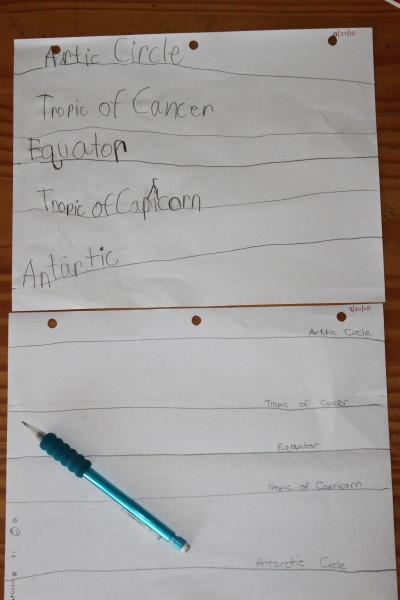 9/20/10
Artic Circle
Tropic of Cancer
Equator
Tropic of Capricorn
Antartic
9/20/10
Arctic Circle
Tropic of Cancer
Equator
Tropic of Capricorn
Antarctic Circle